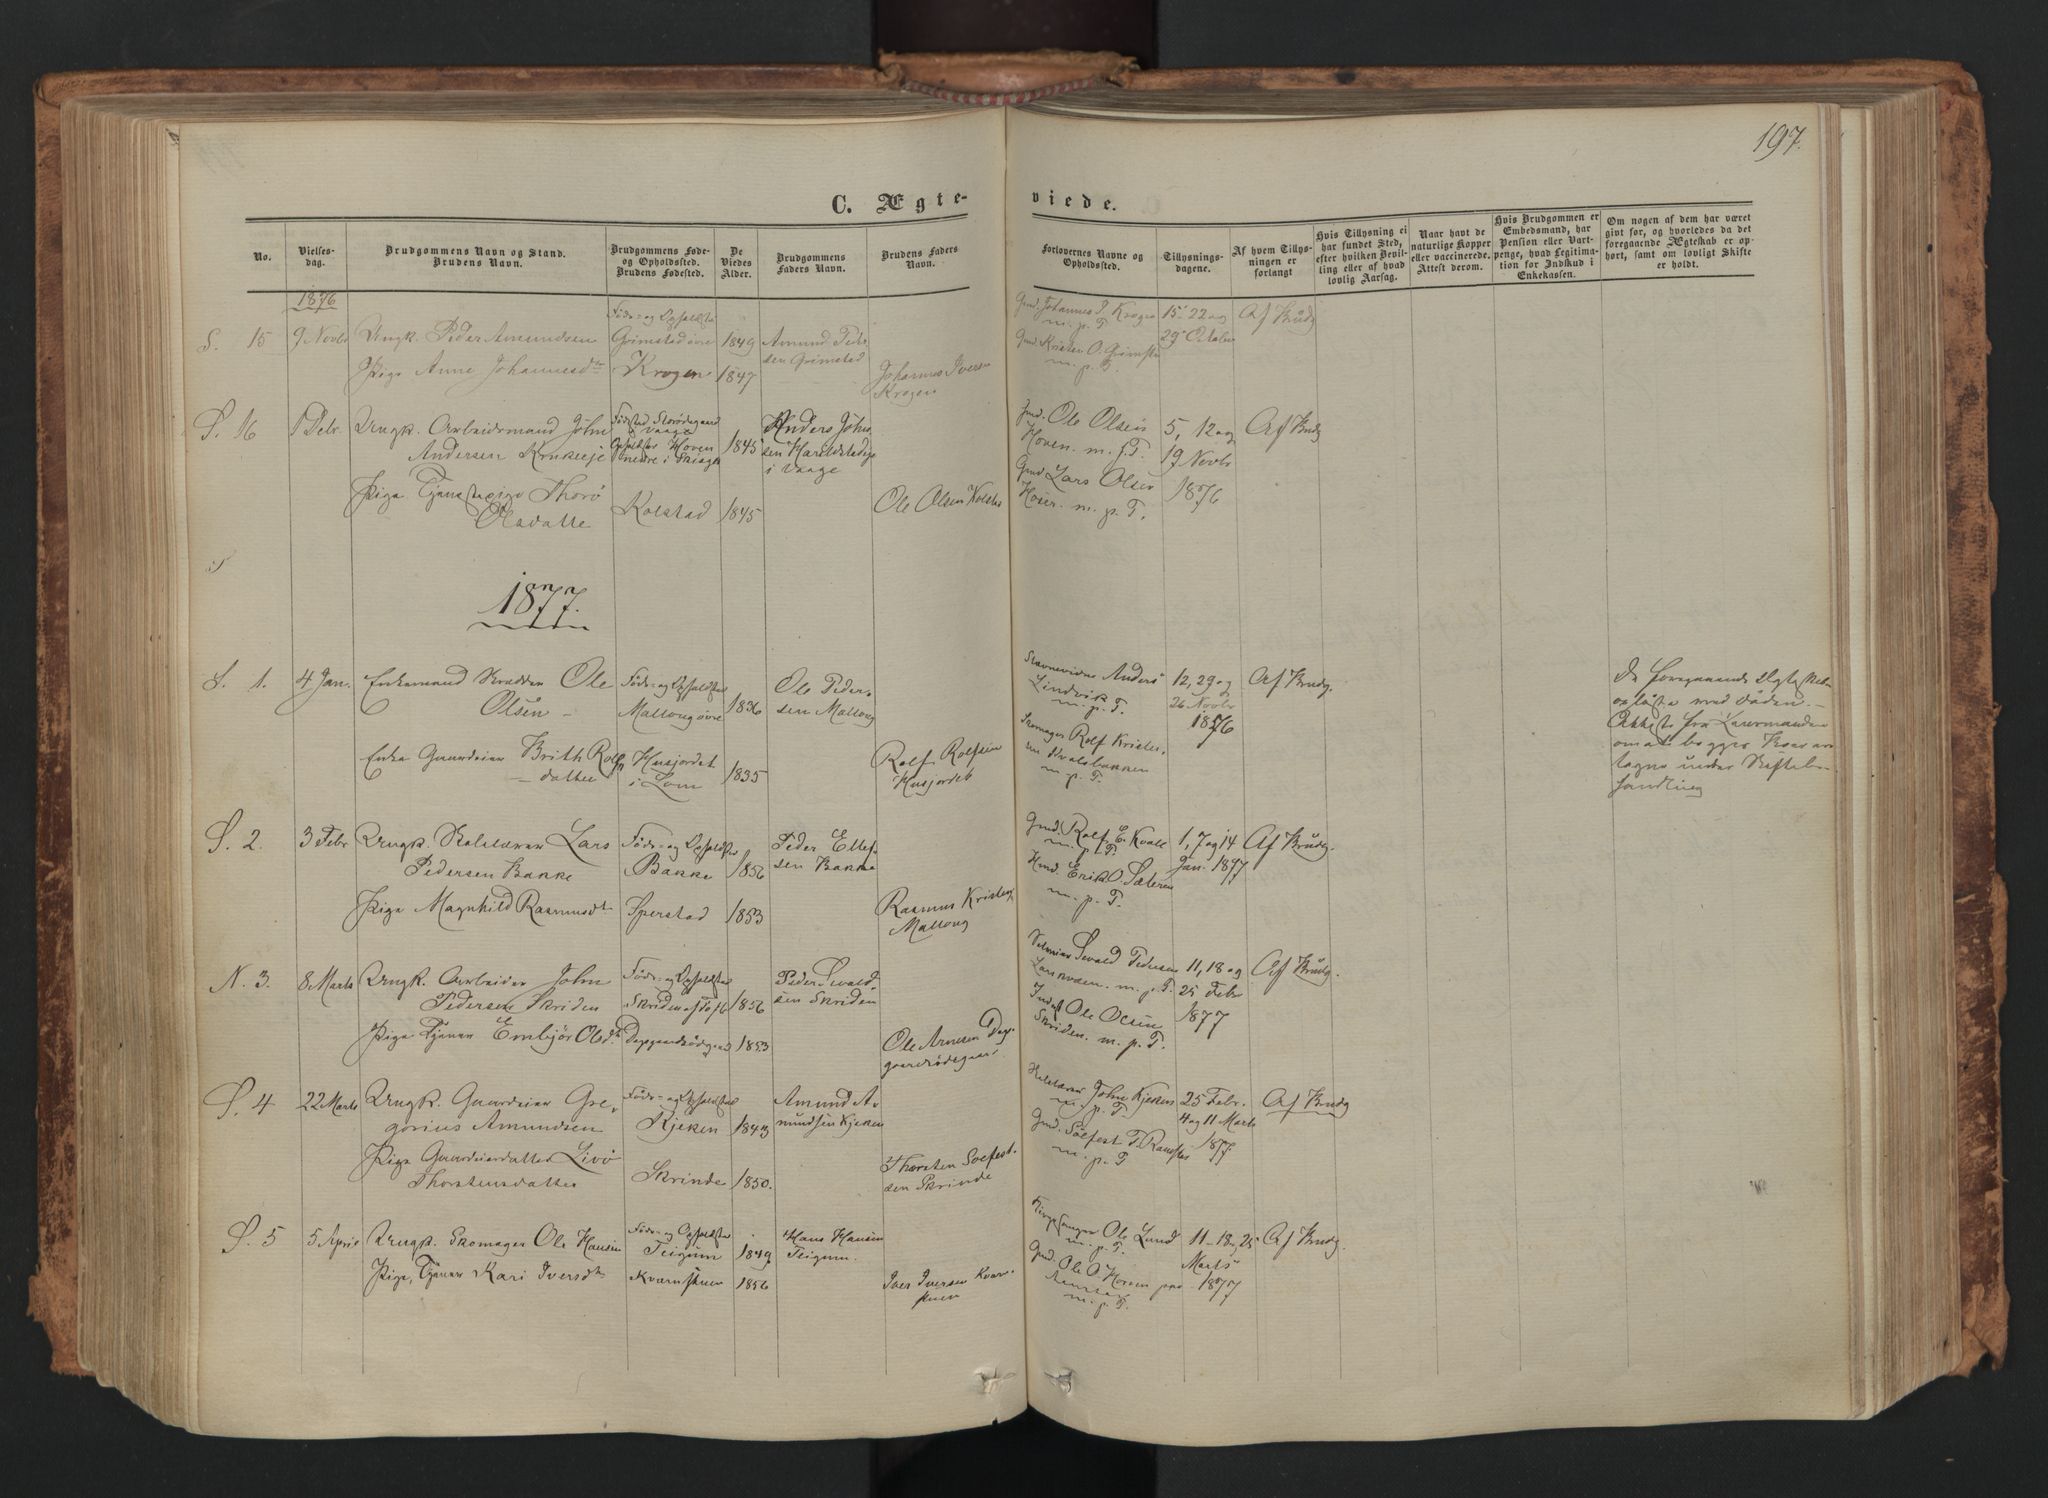 197.
C. Ægte-
viede.
No.
Vielses-
dag.
Brudgommens Navn og Stand.
Brudens Navn.
Brudgommens Føde-
og Opholdssted.
Brudens Fødested.
De
Viedes
Alder.
Brudgommens
Faders Navn.
Brudens Faders
Navn.
Forlovernes Navne og
Opholdssted.
Tillysnings-
dagene.
Af hvem Tillys-
ningen er
forlangt
Hvis Tillysning ei
har fundet Sted,
efter hvilken Bevil-
ling eller af hvad
lovlig Aarsag.
Naar havt de
naturlige Kopper
eller vaccinerede.
Attest derom.
Hvis Brudgommen er
Embedsmand, har
Pension eller Vart-
penge, hvad Legitima-
tion for Indskud i
Enkekassen.
Om nogen af dem har været
givt før, og hvorledes da det
foregaaende Ægteskab er op-
hørt, samt om lovligt Skifte
er holdt.
1876
S. 15
9 Novbr
Ungk. Peder Amundsen
Pige Anne Johannesdtr
Føde- og Opholdsted
Grimstad øvre
Krogen
1849
1847
Amund Peder-
sen Grimstad
Johannes Iversen
Krogen
Gmd. Johannes I. Krogen
m. p. P.
Gmd. Kristen O. Grimstad
m. p. P.
15, 22 og
29 October
Af Brudg
S. 16
1 Debr.
Ungk. Arbeidsmand John
Andersen
Pige Tjenestepige Thorø
Olsdatte
i Vaage
Hoven
nedre i Skiager
Kolstad
1845
1845
Anders John-
sen
i Vaage
Ole Olsen Kolstad
Gmd. Ole Olsen
Hoven. m. p. P.
Gmd Lars Olsen
m. p. P.
5, 12 og
19 Novbr
1876
Af Brudg
1877.
S. 1.
4 Jan.
Enkemand Skrædder Ole
Olsen
Enke Gaardeier Brith Rolfs
datter
Føde- og Opholdsted
Mallong øvre
Husjordet
i Lom
1836
1835
Ole Peder-
sen Mallong
Rolf Rolfsen
Husjordet
Anders
Lindvik
m. p. P.
Skomager Rolf Kristen-
sen Kvalsbakken
m. p. P.
12, 29 og
26 Novbr
1876
Af Brudg.
De foregaaende Ægteskab
opløste ved Døden. -
Attest fra Lensmanden
om at begges Boer er
tagne under Skiftebe-
handling
S. 2.
3 Febr
Ungk. Skolelærer Lars
Pedersen Bakke
Pige Magnhild Rasmusdt
Føde- og Opholdsted
Bakke
Sperstad
1856
1853
Peder Ellef-
sen Bakke
Rasmus Kristens
Mallong
Gmd. Rolf E. Kvale
m. p. P.
Hmd. Erik O. Sæteren
m. p. P.
1, 7 og 14
Jan. 1877
Af Brudg.
N. 3.
8 Marts
Ungk. Arbeider John
Pedersen Skriden
Pige Tjener Embjør Olsdt
Føde- og Opholdsted
Skriden
1856
1853
Peder Sevald-
sen Skriden
Ole Arnesen Dag-
Sevald Pedersen
m. p. P.
Ole Olsen
Skriden. m. p. P.
11, 18 og
25 Febr
1877
Af Brudg.
S. 4
22 Marts
Ungk. Gaardeier Gre-
gorius Amundsen
Pige Gaardeierdatter Livø
Thorstensdatter
Føde- og Opholdsted
Kjeken
Skrinde
1843
1850.
Amund A-
mundsen Kjeken
Thorsten Solfest-
sen Skrinde
John Kjeken
m. p. P.
Gmd. Solfest T.
m. p. P
25 Febr.
4 og 11 Marts
1877.
Af Brudg
S. 5
5 April
Ungk. Skomager Ole Hansen
Pige, Tjener Kari Iversdt
Føde- og Opholdsted
Teigum
1849
1856
Hans Hansen
Teigum.
Iver Iversen Kvarn-
Kirkesanger Ole Lund
m. p. P.
Gmd. Ole O. Hoven
m. p. P.
11-18 og 25
Marts
1877
Af Brudg.